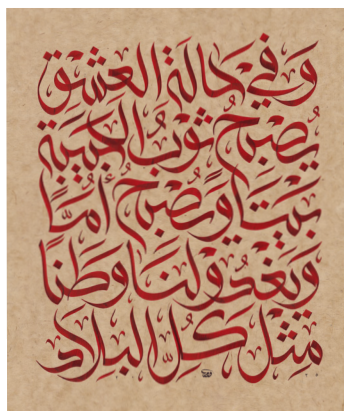 وَفي حَالَة العِشْقِ
يُصْبِحُ ثَوْبُ الحَبيبَة
بَيْتَاً وَيُصْبِحُ أُمَّاً
وَيَغْدُو لَنَا وَطَنَاً
مِثْلَ كُلِّ البِلَادِ